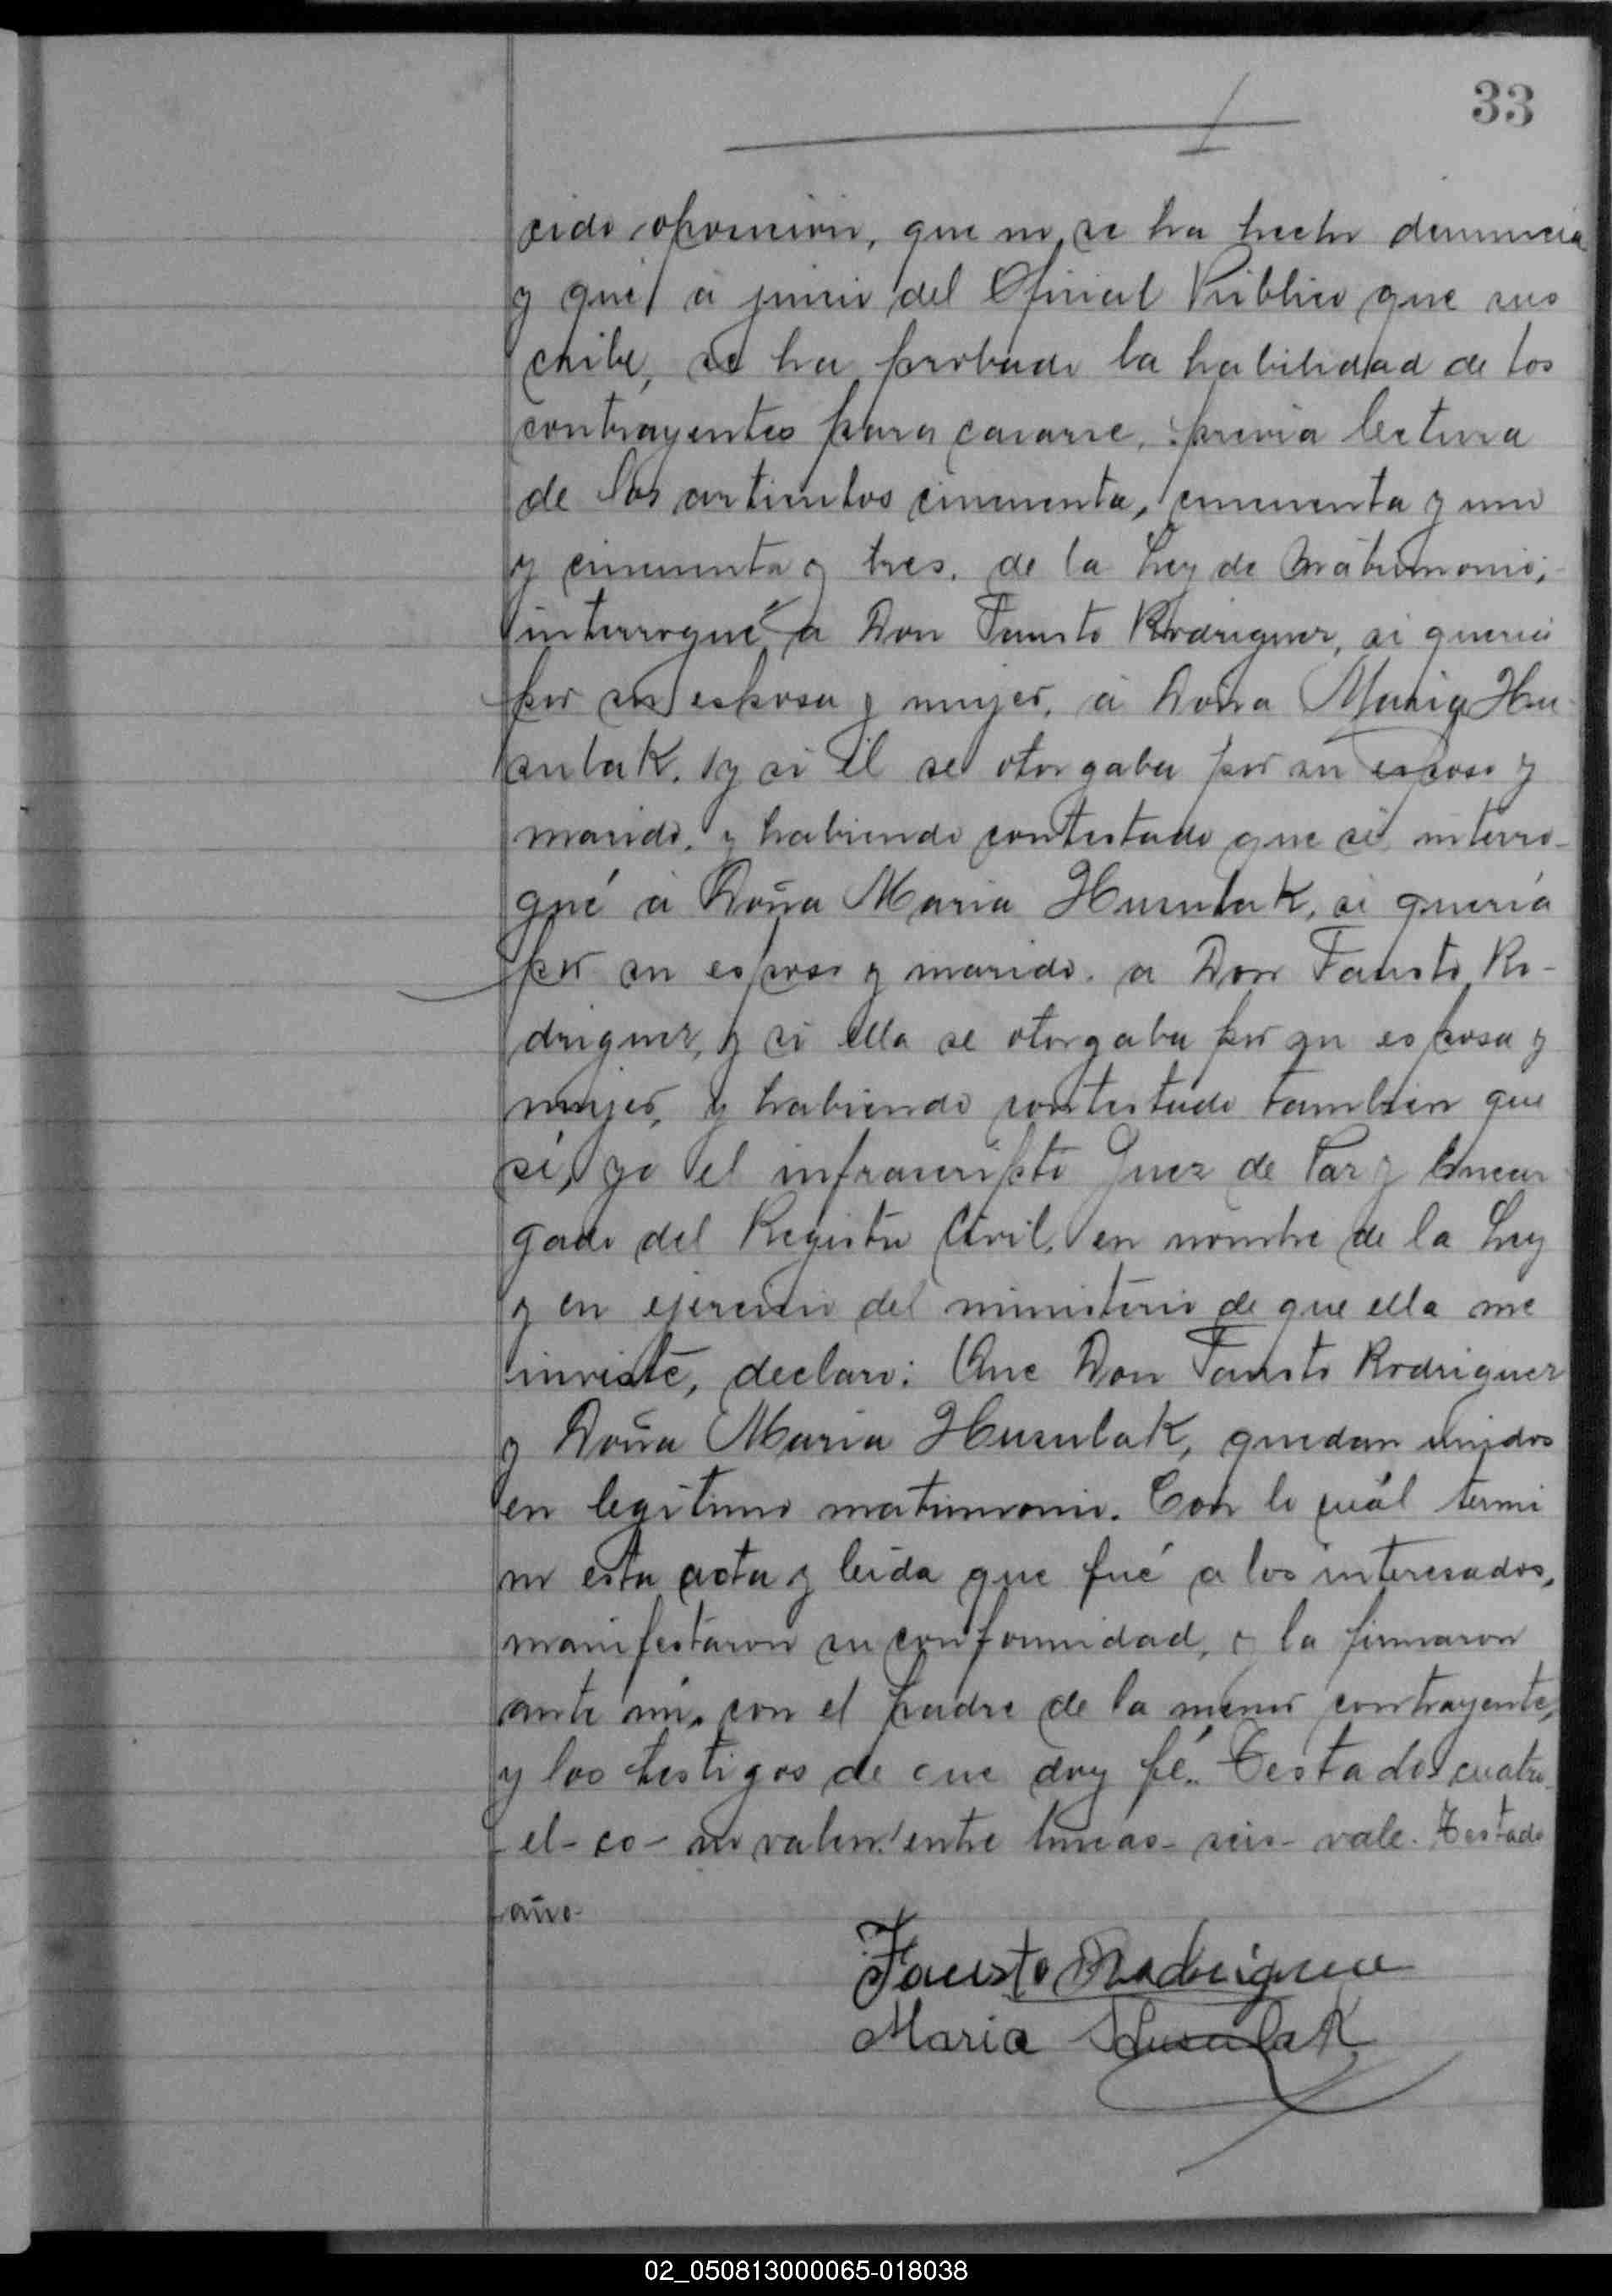 33
cido oposicion, que no se ha hecho denuncia
y que á juicio del Oficial Público que sus
cribe, se ha probado la habilidad de los
contrayentes para casarse, previa lectura
de los articulos cincuenta, cincuenta y uno
y cincuenta y tres, de la Ley de Matrimonio;
interrogué a Don Fausto Rodriguez, si queria
por su esposa y mujer, á Doña Maria Hu-
sulak, y si él se otorgaba por su esposo y
marido, y habiendo contestado que si, interro-
gué á Doña Maria Husulak, si quería
por su esposo y marido, a Don Fausto Ro-
driguez, y si ella se otorgaba por su esposa y
mujer, y habiendo contestado tambien que
sí, yo el infrascripto Juez de Paz y Encar
gado del Registro Civil, en nombre de la Ley
y en ejercicio del ministerio de que ella me
inviste, declaro: Que Don Fausto Rodriguez
y Doña Maria Husulak, quedan unidos
en legítimo matrimonio. Con lo cuál termi
no esta acta y leida que fué a los interesados,
manifestaron su conformidad, y la firmaron
ante mi, con el padre de la menor contrayente,
y los testigos de que doy fé. Testado cuatro
el - co - no valen. entre lineas - seis - vale. Testado
año -
Fausto Rodriguez
Maria Husulak
02_050813000065-018038